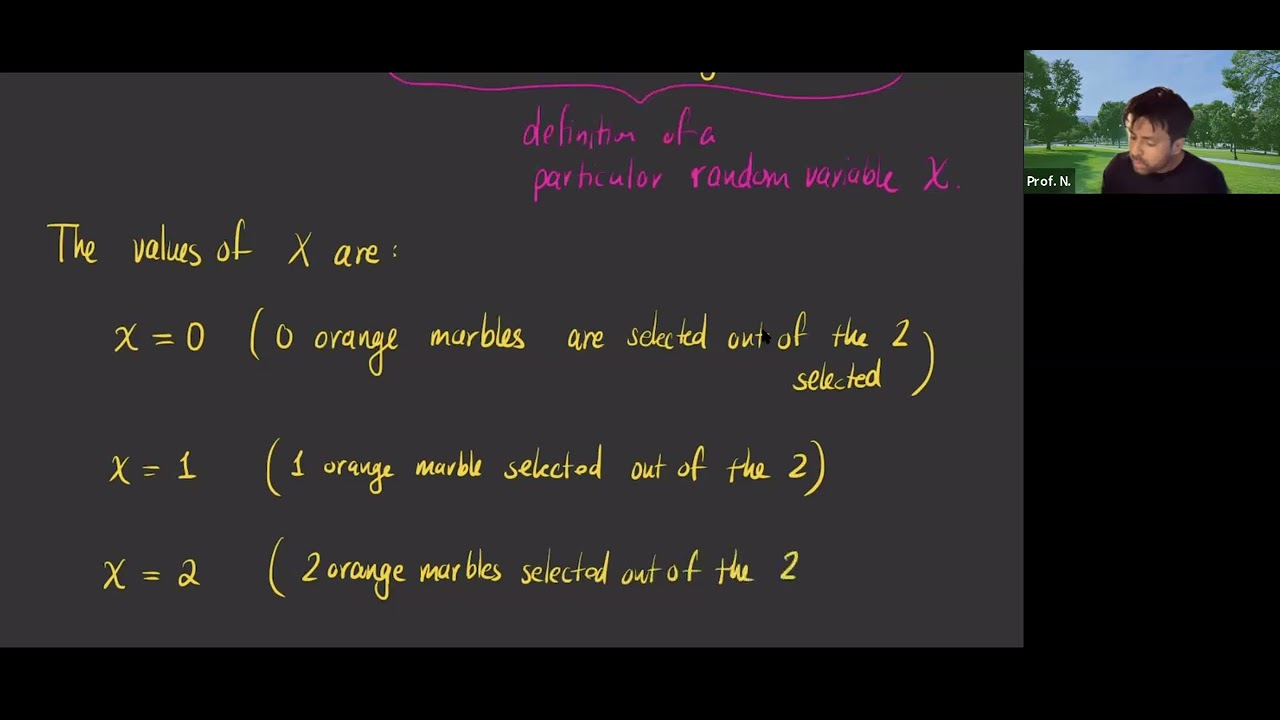 definition of a
particular random variable X.
Prof. N.
The values of X are:
x = 0 (0 orange marbles are selected out of the 2
selected)
x = 1 (1 orange marble selected out of the 2)
x = 2 (2 orange marbles selected out of the 2